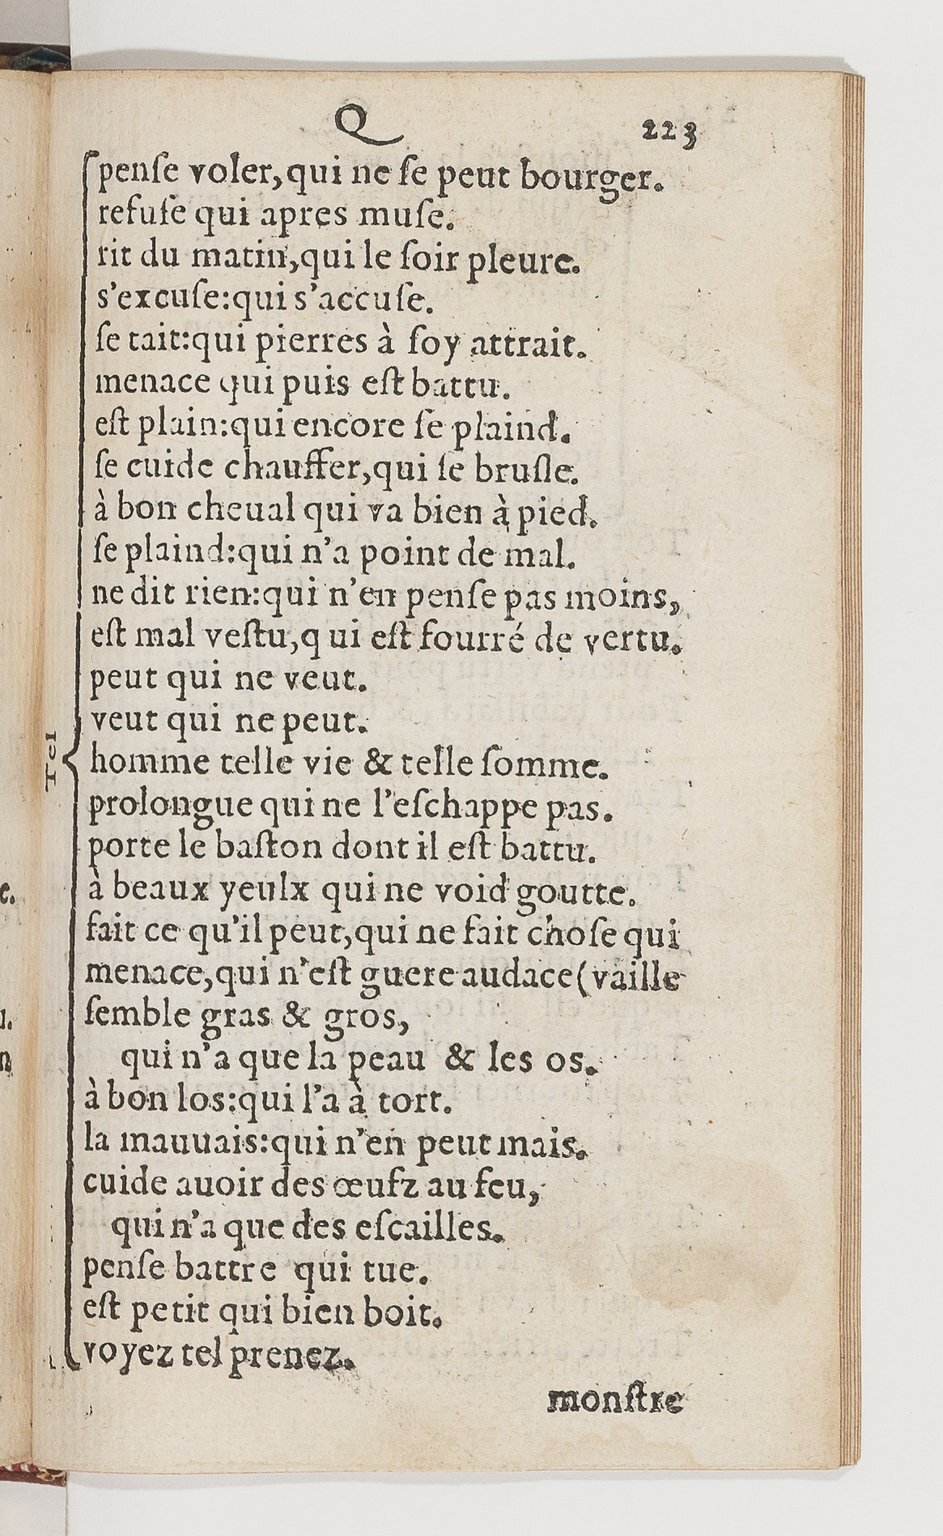 Q 223
penſe voler,qui ne ſe peut bourger.
refuſe qui apres muſe.
rit du matin,qui le ſoir pleure.
s'excuſe:qui s'accuſe.
ſe tait:qui pierres à ſoy attrait.
menace qui puis eſt battu.
eſt plain:qui encore ſe plaind.
ſe cuide chauffer,qui ſe bruſle.
à bon cheual qui va bien à pied.
ſe plaind:qui n'a point de mal.
ne dit rien:qui n'en penſe pas moins,
eſt mal veſtu,q ui eſt fourré de vertu.
peut qui ne veut.
veut qui ne peut.
Tel
homme telle vie & telle ſomme.
prolongue qui ne l'eſchappe pas.
porte le baſton dont il eſt battu.
à beaux yeulx qui ne void goutte.
fait ce qu'il peut,qui ne fait choſe qui
menace,qui n'eſt guere audace(vaille
ſemble gras & gros,
qui n'a que la peau & les os.
à bon los:qui l'a à tort.
la mauuais:qui n'en peut mais.
cuide auoir des œufz au feu,
qui n'a que des eſcailles.
penſe battre qui tue.
eſt petit qui bien boit.
voyez tel prenez.
monſtre